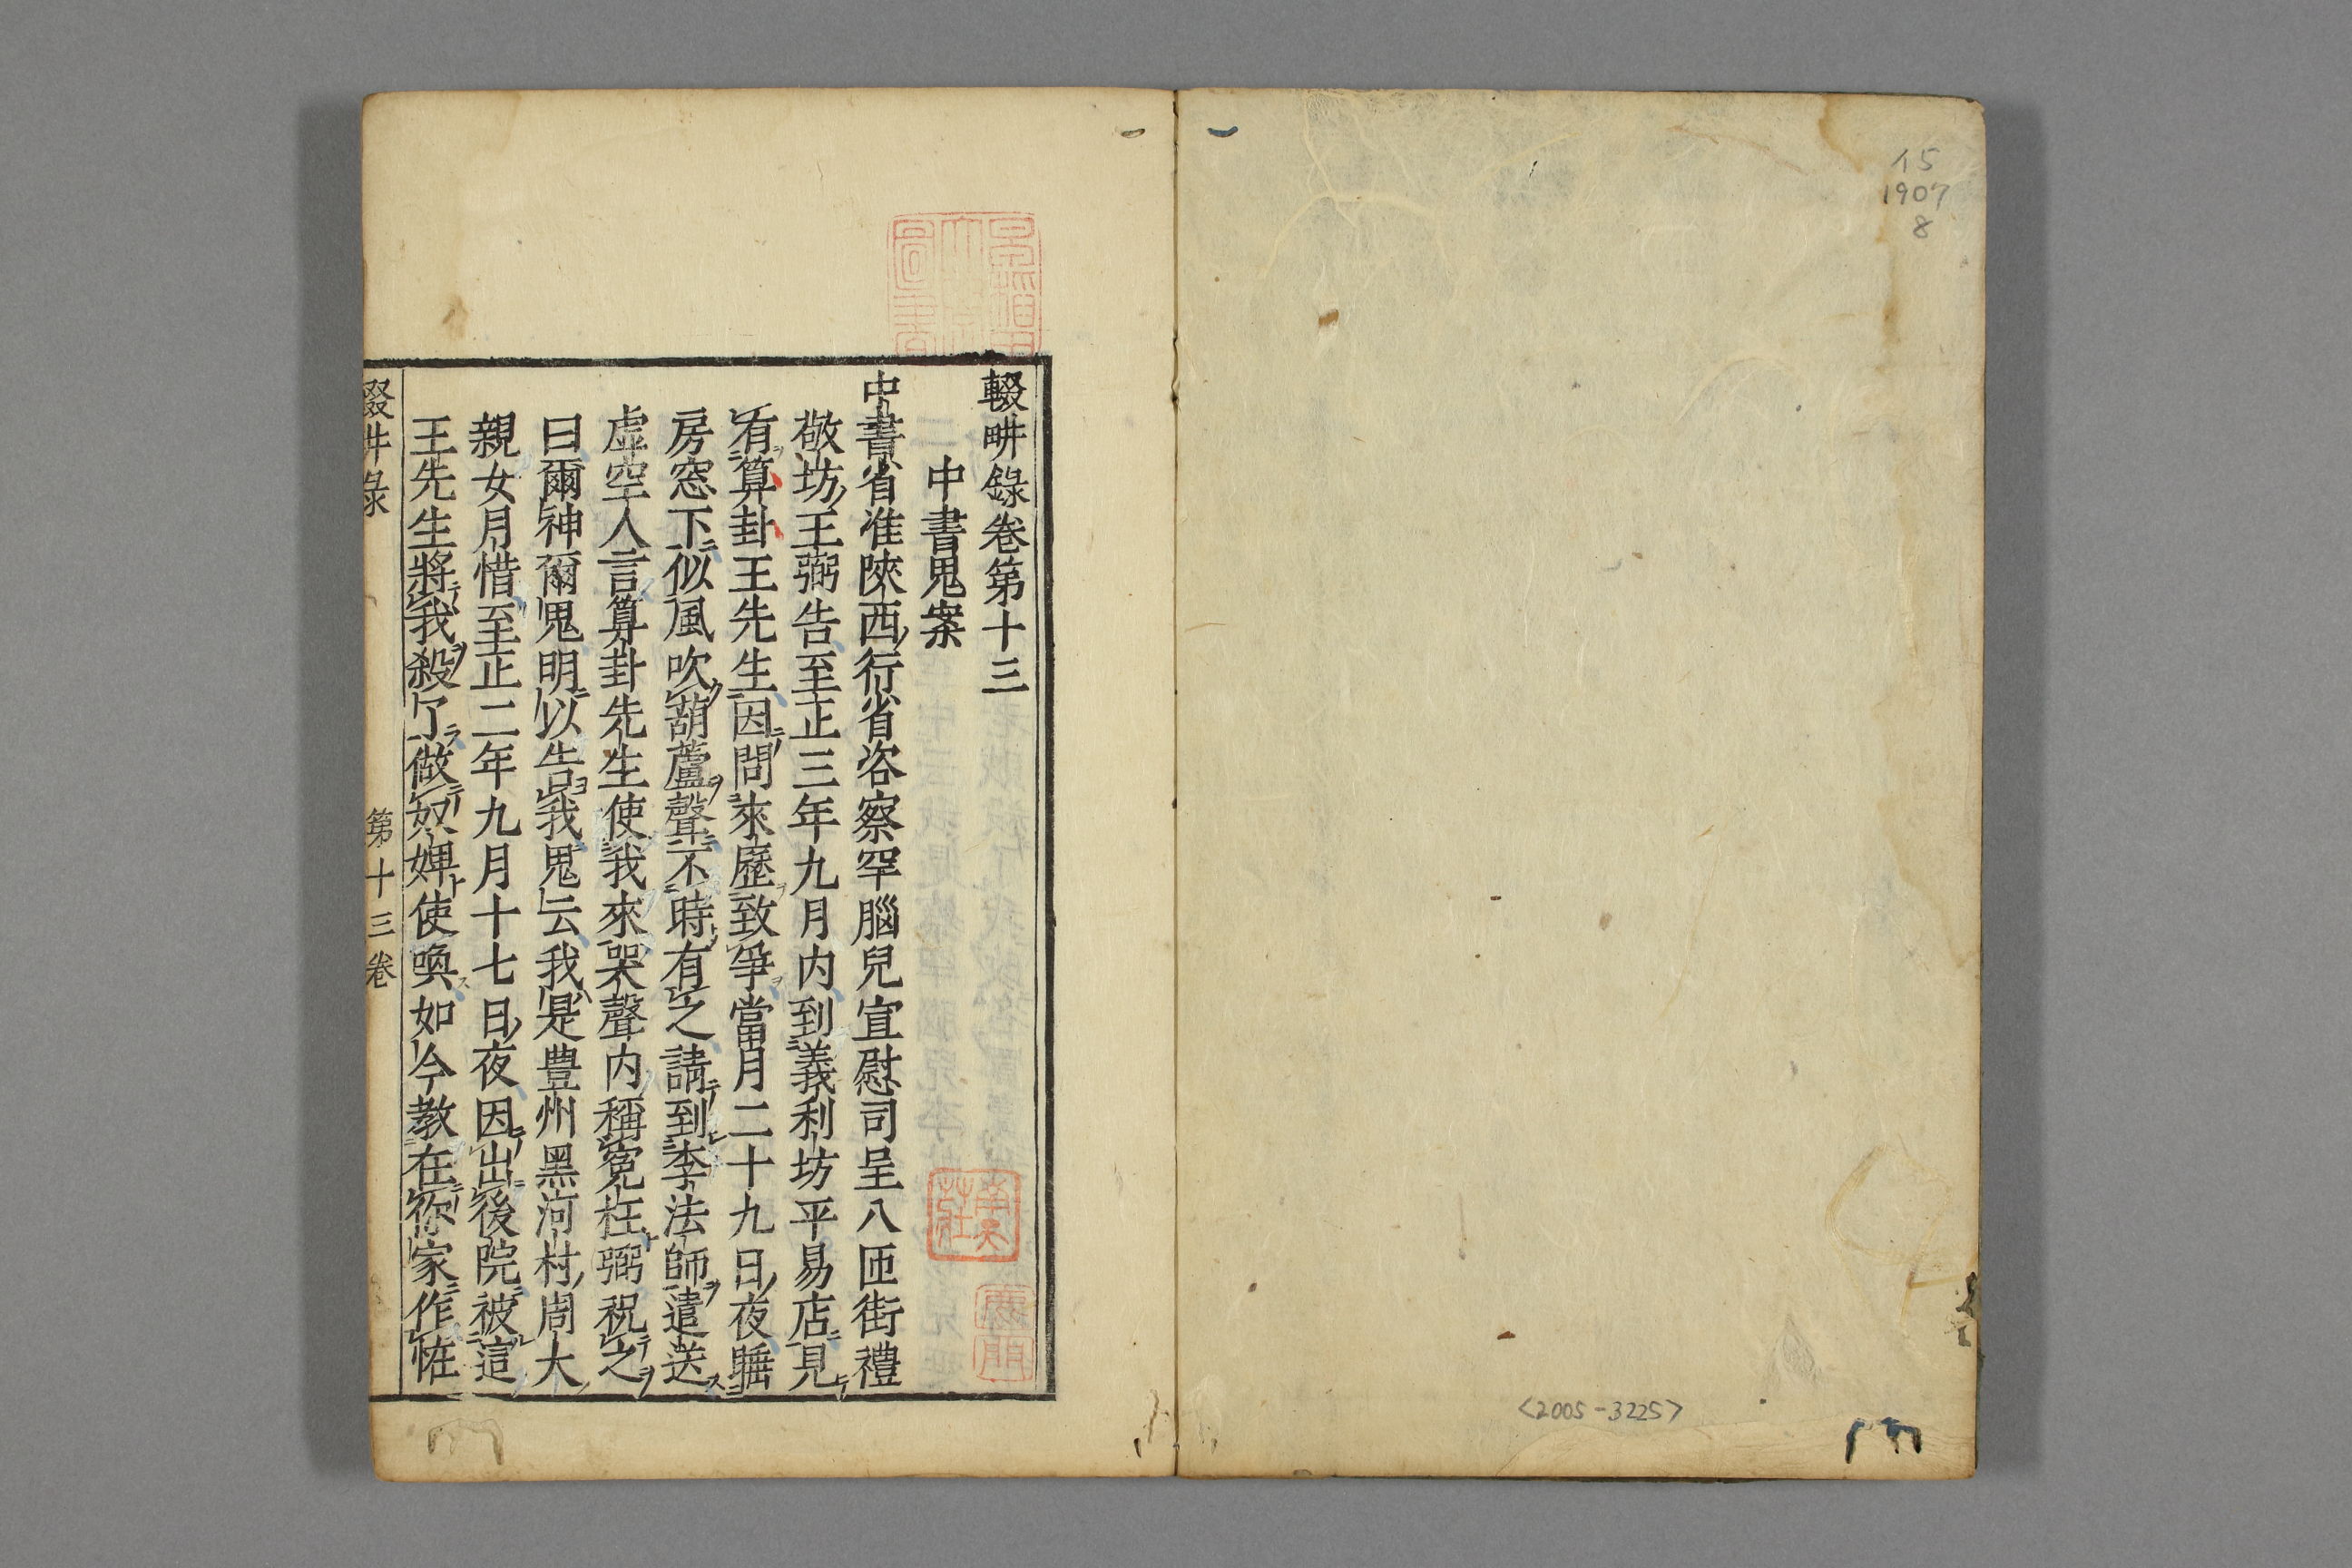 15
1907
8
<2005-3225>
輟畊錄卷第十三
中書鬼案
中書省准陝西行省咨察罕腦兒宣慰司呈八匝街禮
敬坊王弼告至正三年九月内到義利坊平易店見
有算卦王先生因問來歷致爭當月二十九日夜睡
房窓下似風吹葫蘆聲不時有之請到李法師遣送
虛空人言算卦先生使我來哭聲内稱寃枉弼祝之
曰爾神爾鬼明以告我鬼云我是豊州黑河村周大
親女月惜至正二年九月十七日夜因出後院被這
王先生將我殺了做奴婢使喚如今教在你家作恠
輟畊錄 第十三卷